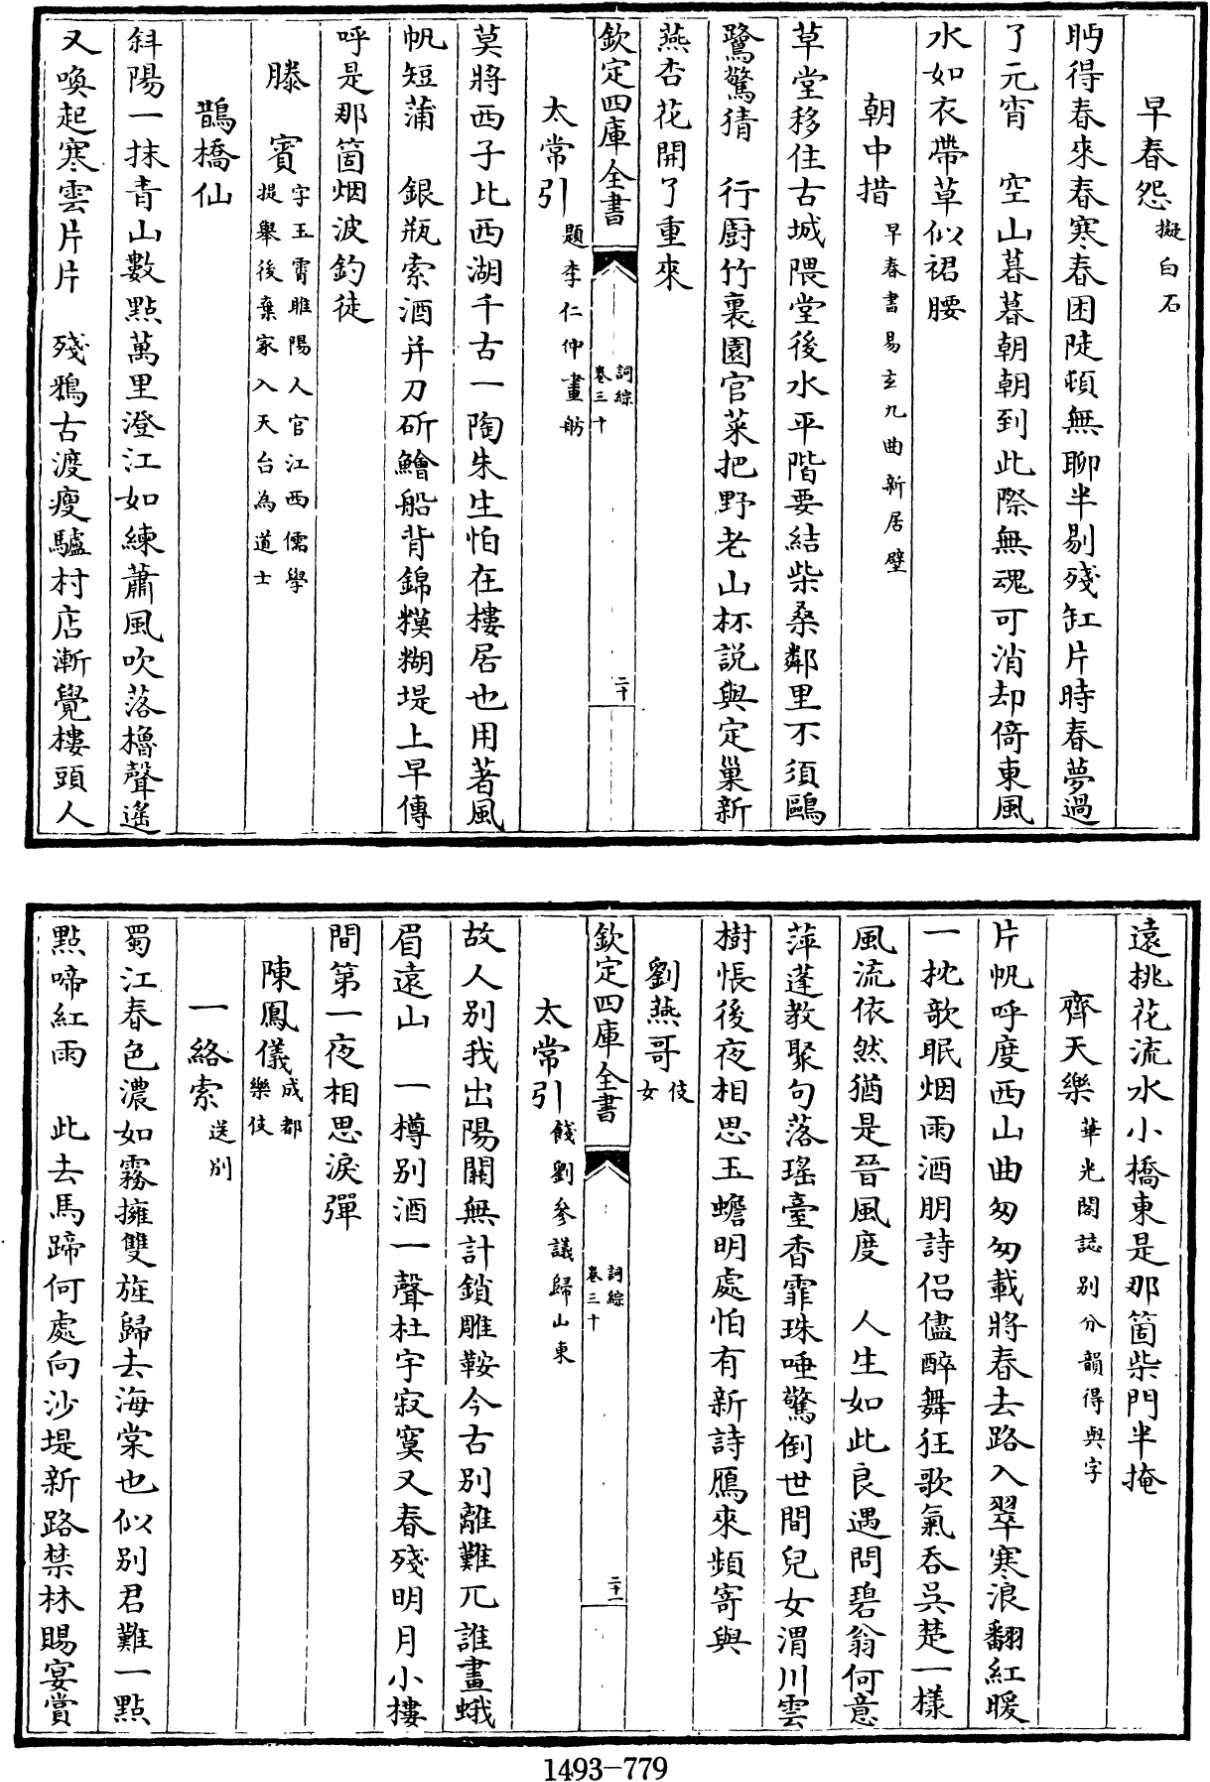 早春怨擬白石
眄得春來春寒春困陡頓無聊半剔殘缸片時春夢過
了元宵　空山暮暮朝朝到此際無魂可消却倚東風
水如衣帶草似裙腰
朝中措早春書易玄九曲新居壁
草堂移住古城隈堂後水平階要結柴桑鄰里不須鷗
鷺驚猜　行厨竹裏園官菜把野老山杯説與定巢新
燕杏花開了重來
欽定四庫全書　詞綜卷三十　二十
太常引題李仁仲畫舫
莫將西子比西湖千古一陶朱生怕在樓居也用著風
帆短蒲　銀瓶索酒并刀斫鱠船背錦糢糊堤上早傳
呼是那箇烟波釣徒
滕賓字玉霄睢陽人官江西儒學提舉後棄家入天台為道士
鵲橋仙
斜陽一抹青山數點萬里澄江如練蕭風吹落櫓聲遙
又喚起寒雲片片　殘鴉古渡瘦驢村店漸覺樓頭人
遠桃花流水小橋東是那箇柴門半掩
齊天樂華光閣誌别分韻得與字
片帆呼度西山曲匆匆載將春去路入翠寒浪翻紅暖
一枕歌眠烟雨酒朋詩侣儘醉舞狂歌氣吞吳楚一樣
風流依然猶是晉風度　人生如此良遇問碧翁何意
萍蓬教聚句落瑤臺香霏珠唾驚倒世間兒女渭川雲
樹悵後夜相思玉蟾明處怕有新詩鴈來頻寄與
劉燕哥伎女
欽定四庫全書　詞綜卷三十　二十一
太常引餞劉參議歸山東
故人别我出陽關無計鎖雕鞍今古别離難兀誰畫蛾
眉遠山　一樽别酒一聲杜宇寂寞又春殘明月小樓
間第一夜相思淚彈
陳鳳儀成都樂伎
一絡索送别
蜀江春色濃如霧擁雙旌歸去海棠也似别君難一點
點啼紅雨　此去馬蹄何處向沙堤新路禁林賜宴賞
1493-779